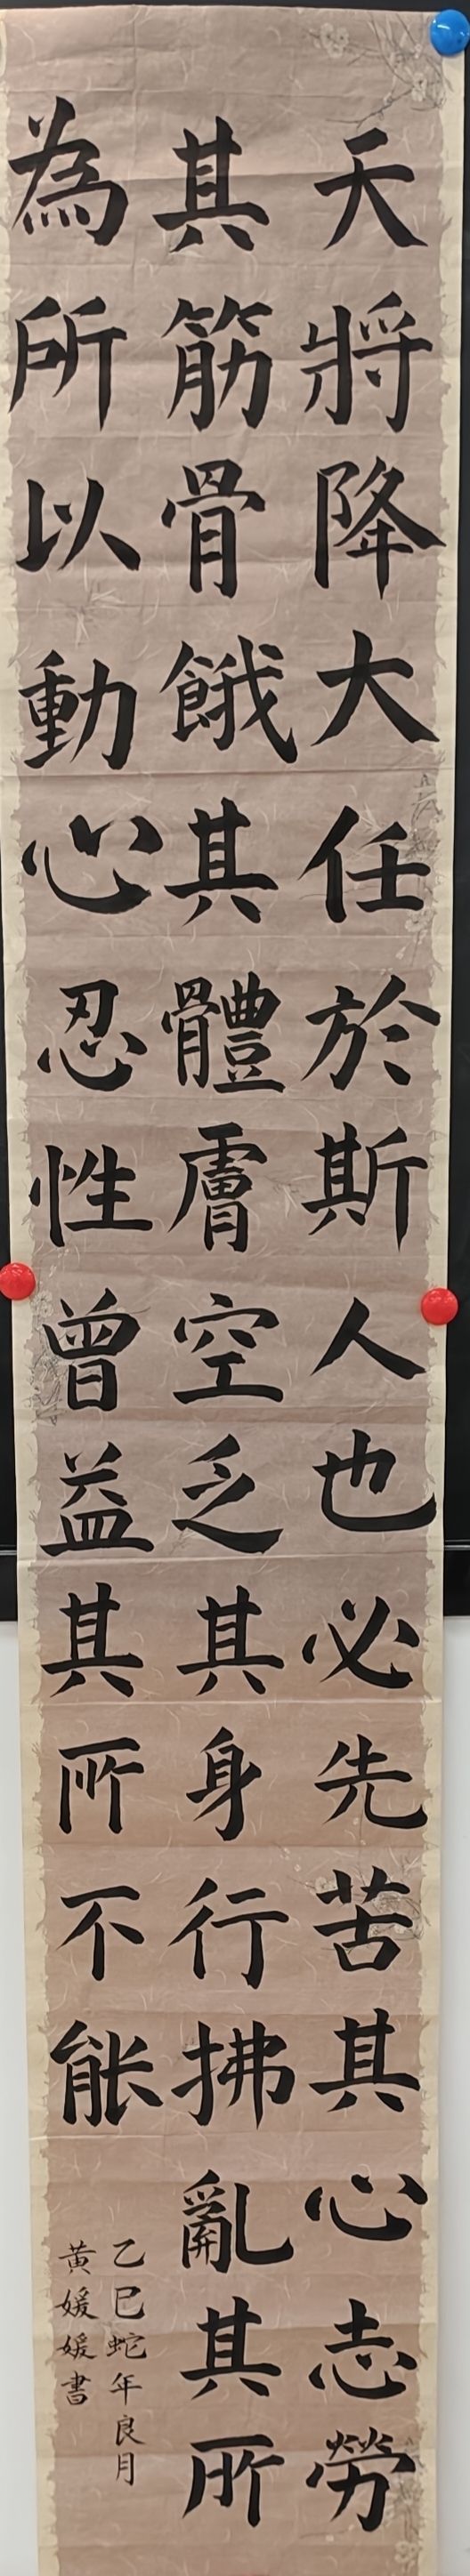 天將降大任於斯人也必先苦其心志勞
其筋骨餓其體膚空乏其身行拂亂其所
為所以動心忍性曾益其所不能
乙巳蛇年良月
黃媛媛書